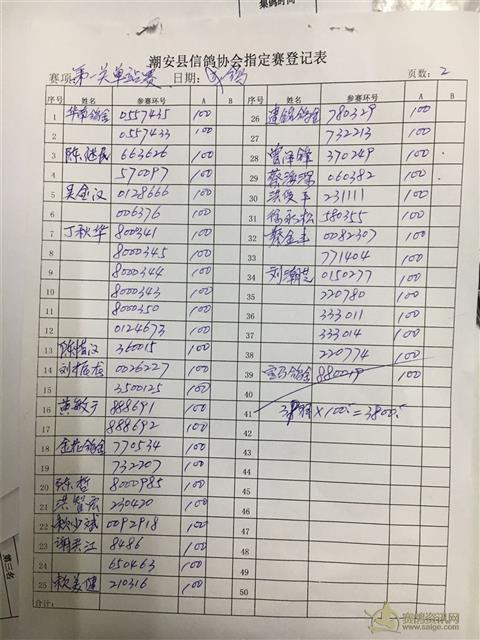 集鸽时间
潮安县信鸽协会指定赛登记表
赛项: 第一关单站赛 日期: 成鸽 页数: 2
序号 姓名 参赛环号 A B 序号 姓名 参赛环号 A B
1 华南鸽舍 0557435 100 26 建锐鸽舍 780329 100
2 0557433 100 27 732213 100
3 陈 663626 100 28 曾泽锋 370249 100
4 570097 100 29 蔡 060382 100
5 吴金汉 0128666 100 30 洪俊丰 231111 100
6 006376 100 31 徐永松 580355 100
7 丁秋华 800341 100 32 蔡金丰 0082307 100
8 8000345 100 33 771404 100
9 8000344 100 34 刘潮 0150277 100
10 8000343 100 35 220780 100
11 8000350 100 36 333011 100
12 0124673 100 37 333014 100
13 陈 汉 360015 100 38 220774 100
14 刘 龙 0026227 100 39 鸽舍 880019 100
15 3500125 100 40
16 黄敏 888691 100 41 38羽×100=3800
17 888692 100 42
18 金龙鸽舍 770534 100 43
19 732207 100 44
20 陈哲 8000985 100 45
21 洪智宏 230420 100 46
22 赖少斌 0092918 100 47
23 谢英江 8486 100 48
24 650463 100 49
25 赖 健 210316 100 50
合计:
第三名
赛鸽资讯网
www.saige.com